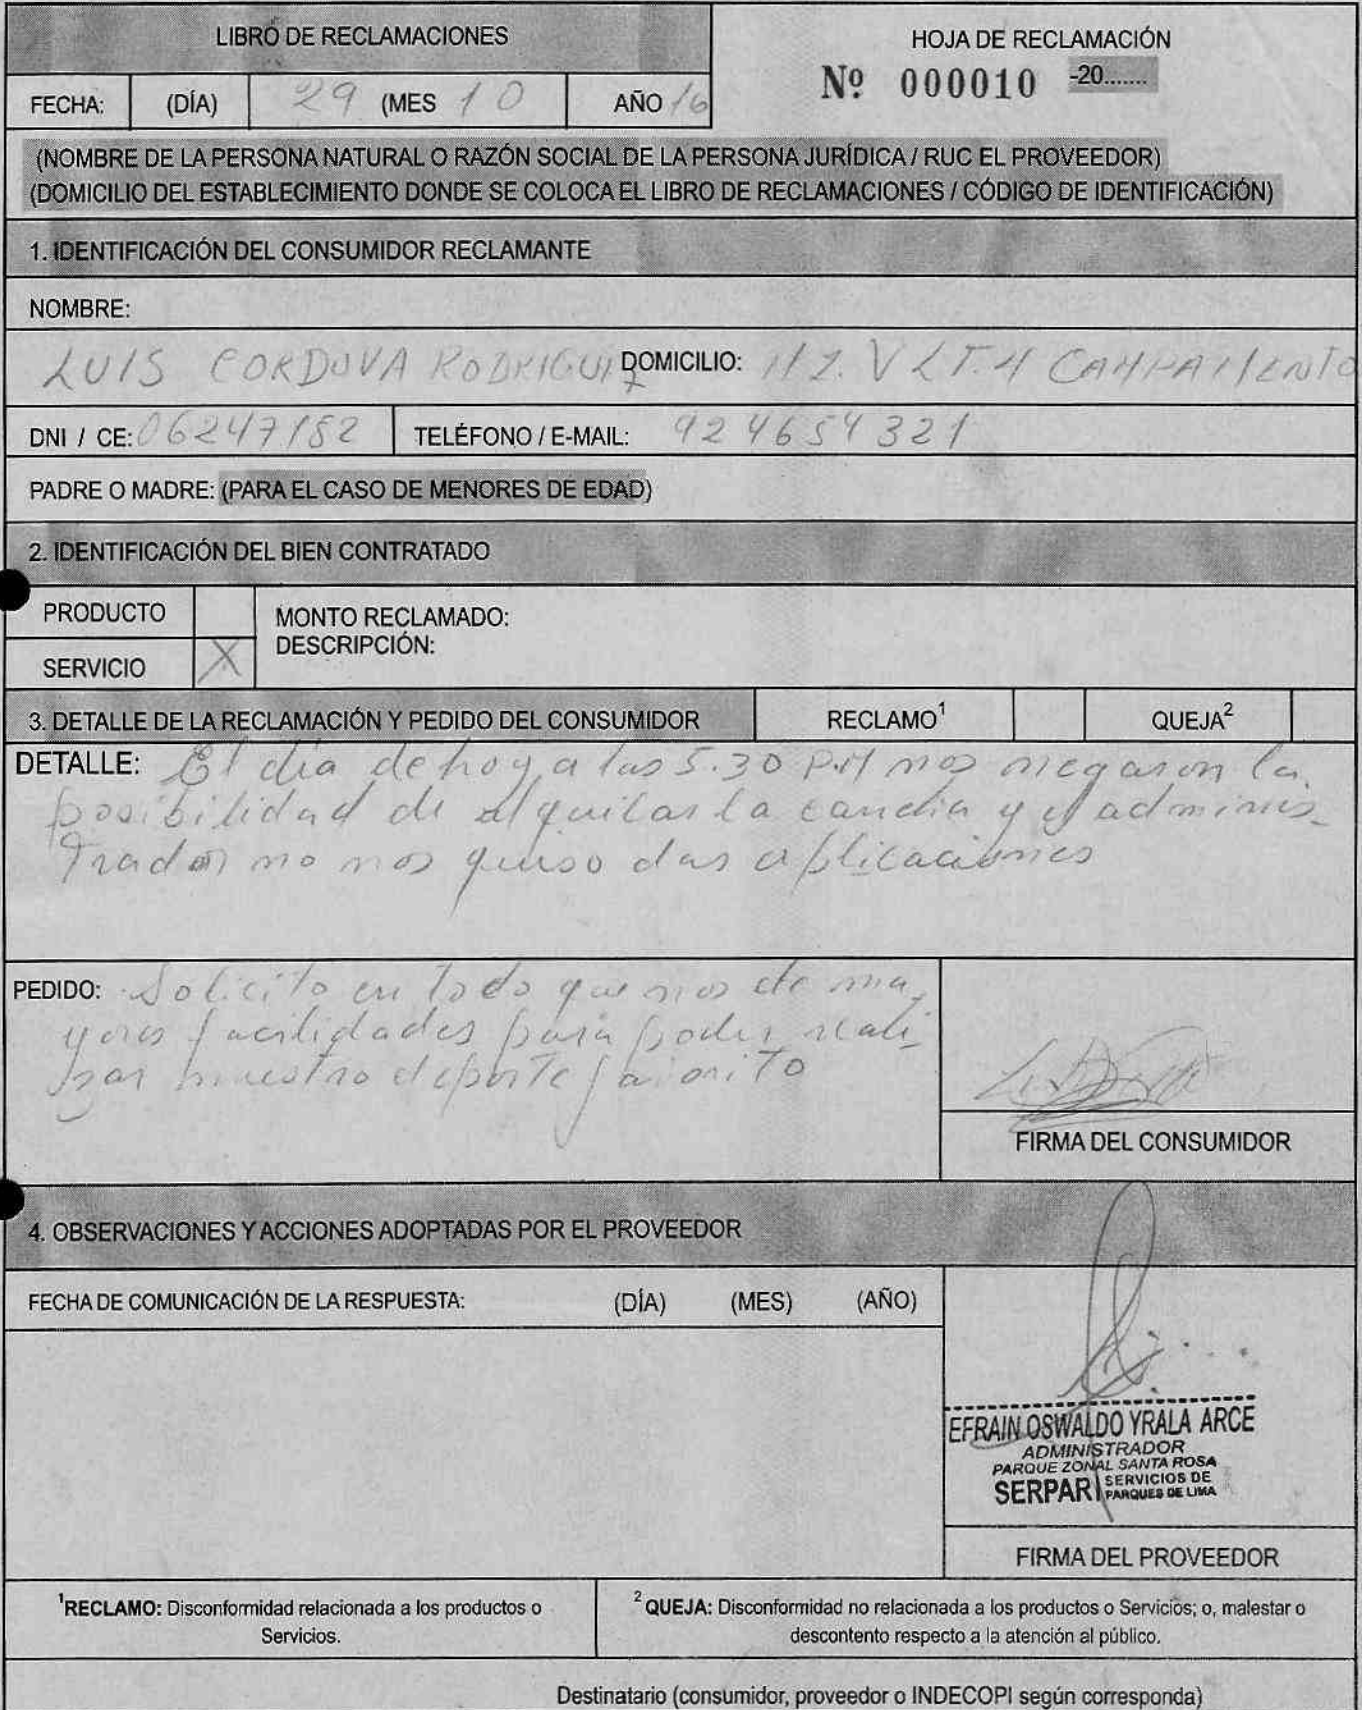 LIBRO DE RECLAMACIONES
HOJA DE RECLAMACIÓN
Nº 000010 -20.......
FECHA: (DÍA) 29 (MES 10 AÑO 16
(NOMBRE DE LA PERSONA NATURAL O RAZÓN SOCIAL DE LA PERSONA JURÍDICA / RUC EL PROVEEDOR)
(DOMICILIO DEL ESTABLECIMIENTO DONDE SE COLOCA EL LIBRO DE RECLAMACIONES / CÓDIGO DE IDENTIFICACIÓN)
1. IDENTIFICACIÓN DEL CONSUMIDOR RECLAMANTE
NOMBRE:
LUIS CORDOVA RODRIGUEZ DOMICILIO: MZ. V LT. 4 CAMPAMENTO
DNI / CE: 06247182 TELÉFONO / E-MAIL: 924654321
PADRE O MADRE: (PARA EL CASO DE MENORES DE EDAD)
2. IDENTIFICACIÓN DEL BIEN CONTRATADO
PRODUCTO
MONTO RECLAMADO:
DESCRIPCIÓN:
SERVICIO X
3. DETALLE DE LA RECLAMACIÓN Y PEDIDO DEL CONSUMIDOR RECLAMO¹ QUEJA²
DETALLE: El día de hoy a las 5.30 P.M nos negaron la
posibilidad de alquilar la cancha y el adminis-
trador no nos quiso dar aplicaciones
PEDIDO: Solicito en todo que nos de ma-
yores facilidades para poder reali-
zar nuestro deporte favorito
FIRMA DEL CONSUMIDOR
4. OBSERVACIONES Y ACCIONES ADOPTADAS POR EL PROVEEDOR
FECHA DE COMUNICACIÓN DE LA RESPUESTA: (DÍA) (MES) (AÑO)
EFRAIN OSWALDO YRALA ARCE
ADMINISTRADOR
PARQUE ZONAL SANTA ROSA
SERPAR SERVICIOS DE
PARQUES DE LIMA
FIRMA DEL PROVEEDOR
¹RECLAMO: Disconformidad relacionada a los productos o
Servicios.
²QUEJA: Disconformidad no relacionada a los productos o Servicios; o, malestar o
descontento respecto a la atención al público.
Destinatario (consumidor, proveedor o INDECOPI según corresponda)